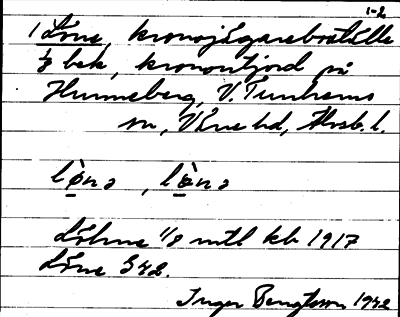 1-2
1 Löne, kronojägareboställe
1/8 bek, kronontjord på
Hunneberg, V. Tunhems
sn, Väne hd, Älvsb. l.
lø̀nə , lø̀nə
Löhne 1/8 mtl kb 1917
Löne S42.
Inger Bengtsson 1942